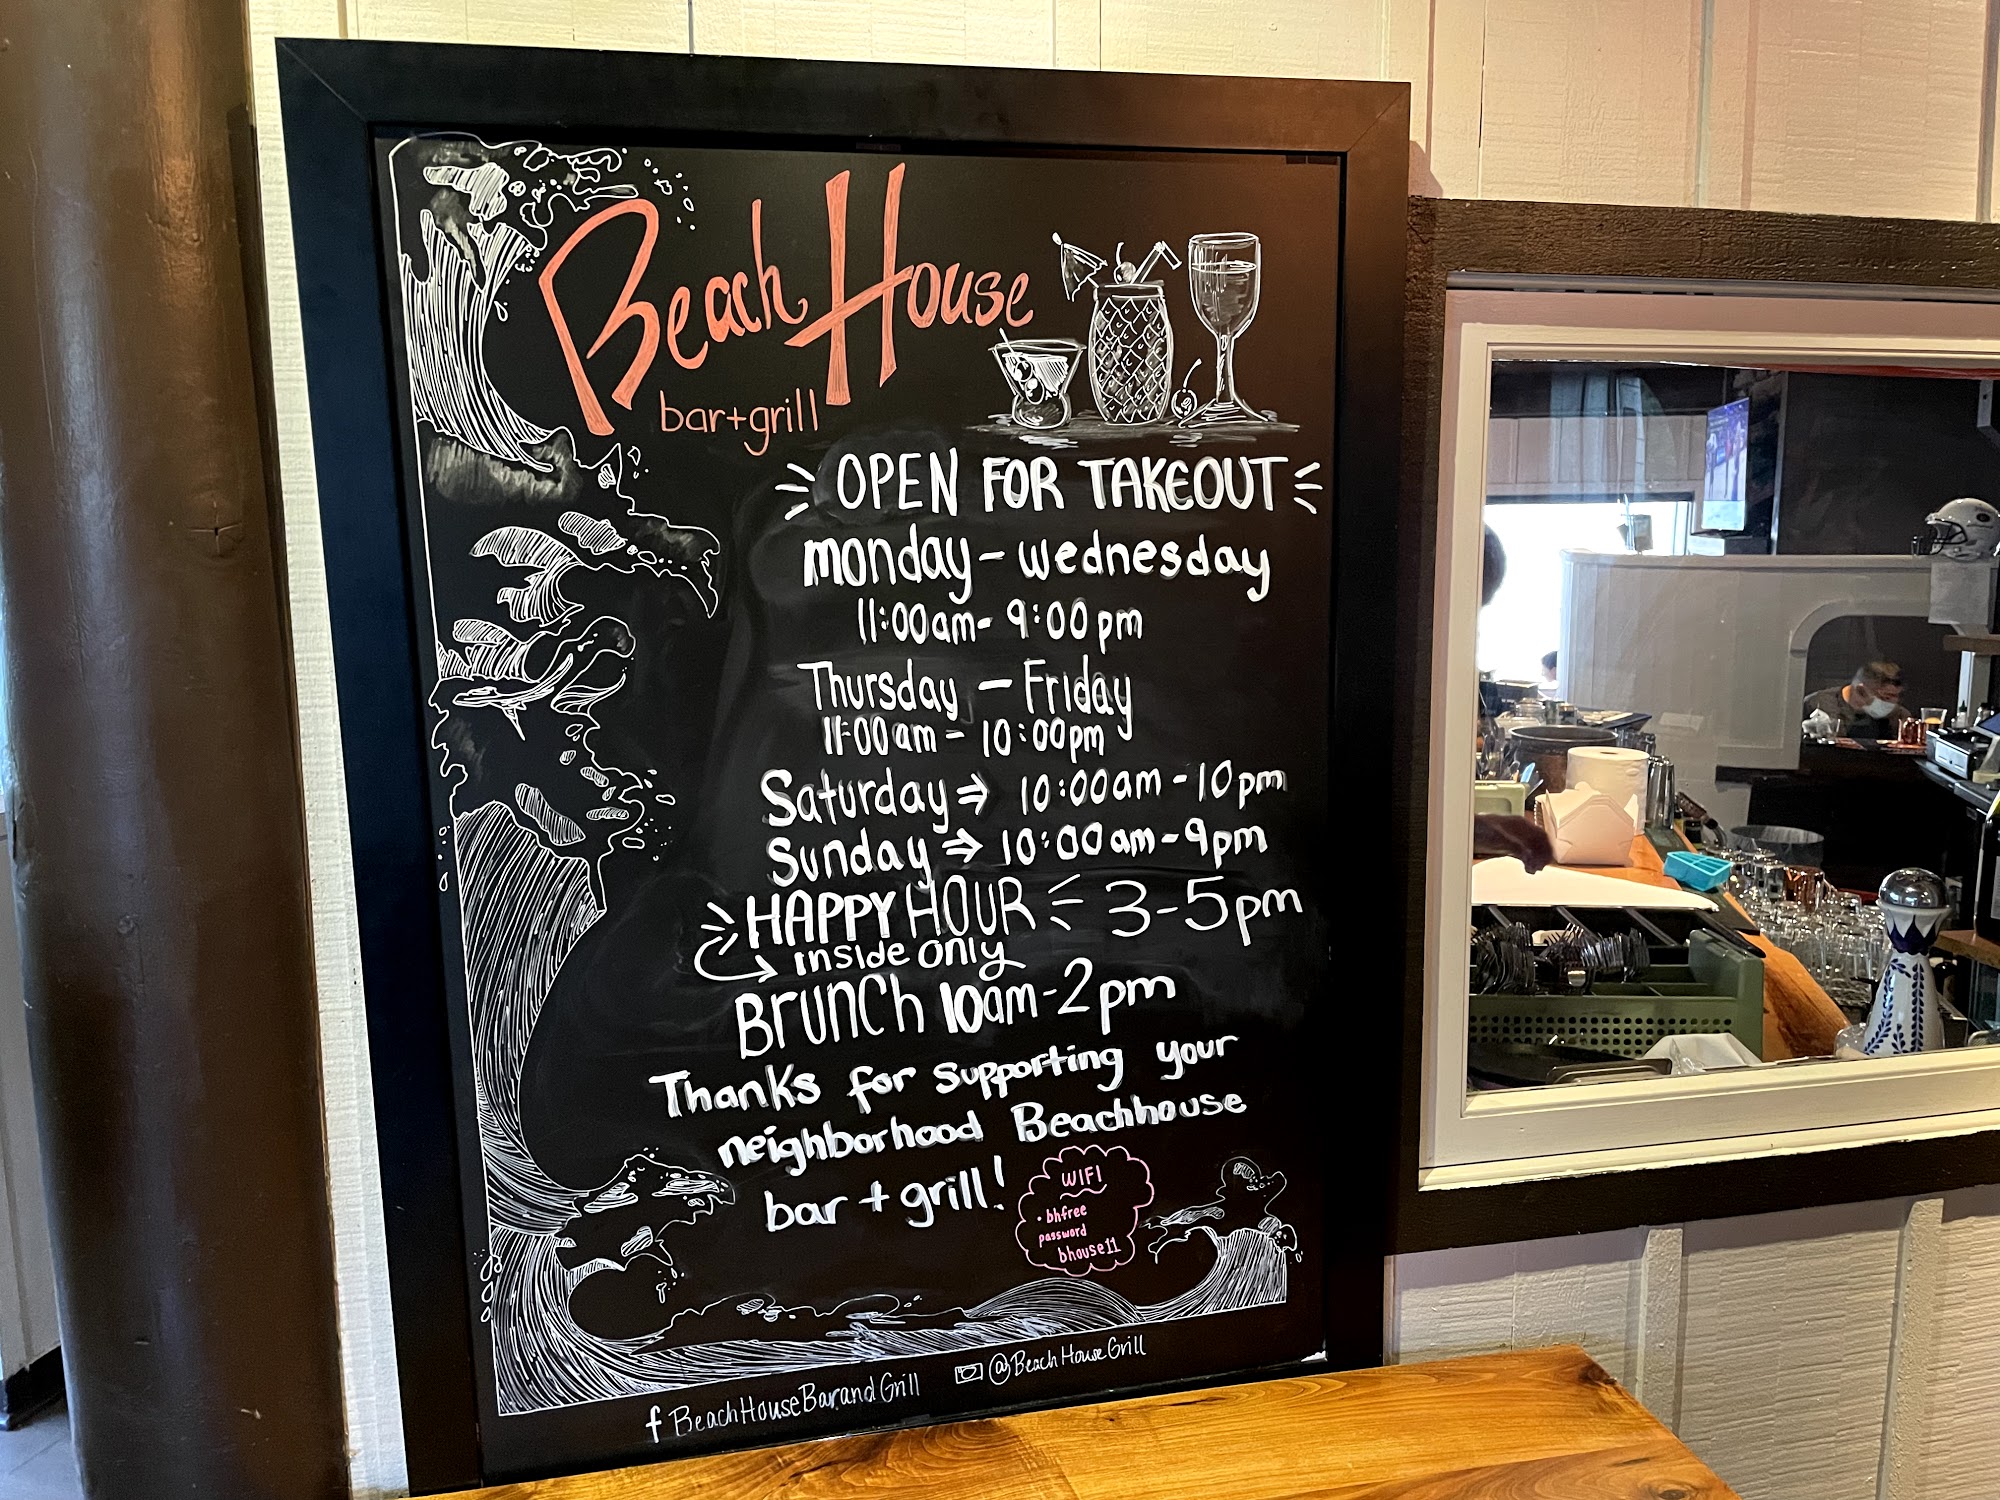 Beach House
bar+grill
OPEN FOR TAKEOUT
monday - wednesday
11:00am - 9:00pm
Thursday - Friday
11:00am - 10:00pm
Saturday ⇒ 10:00am - 10pm
Sunday ⇒ 10:00am - 9pm
HAPPY HOUR 3-5pm
inside only
BRUNCH 10am-2pm
Thanks for supporting your
neighborhood Beachhouse
bar + grill!
WIFI
• bhfree
password
bhouse11
f BeachHouseBarandGrill
@BeachHouseGrill